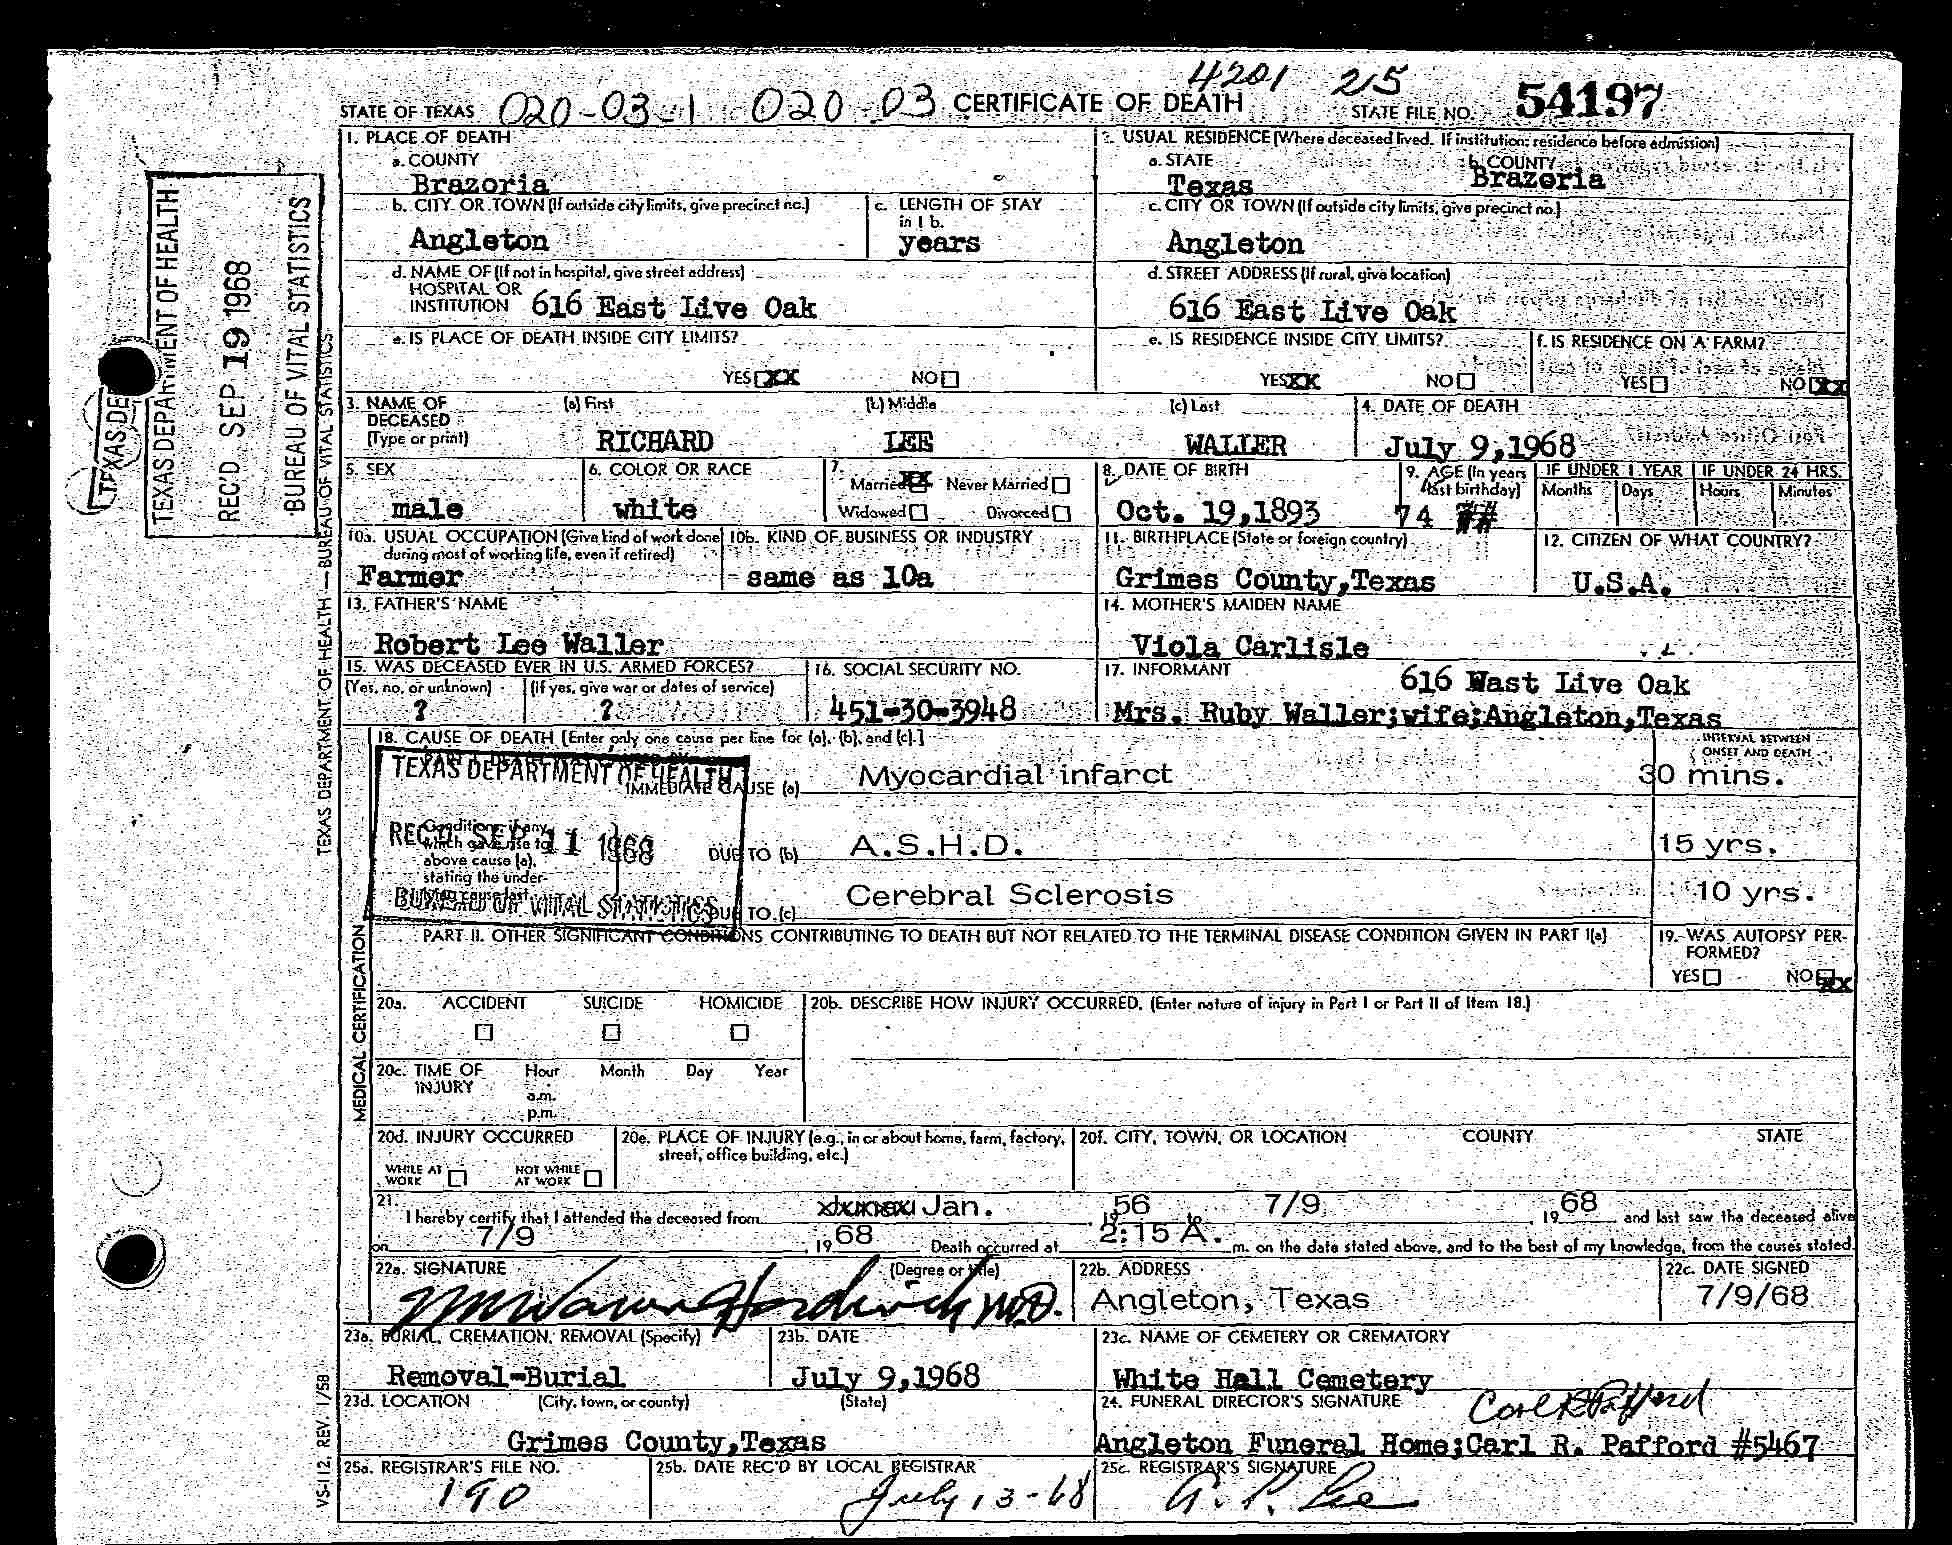 4201 215
STATE OF TEXAS 020-03-1 020-03 CERTIFICATE OF DEATH STATE FILE NO. 54197
1. PLACE OF DEATH
a. COUNTY
Brazoria
2. USUAL RESIDENCE (Where deceased lived. If institution: residence before admission)
a. STATE b. COUNTY
Texas Brazoria
b. CITY OR TOWN (If outside city limits, give precinct no.)
Angleton
c. LENGTH OF STAY
in 1 b.
years
c. CITY OR TOWN (If outside city limits, give precinct no.)
Angleton
d. NAME OF (If not in hospital, give street address)
HOSPITAL OR
INSTITUTION 616 East Live Oak
d. STREET ADDRESS (If rural, give location)
616 East Live Oak
e. IS PLACE OF DEATH INSIDE CITY LIMITS?
YES XX NO
e. IS RESIDENCE INSIDE CITY LIMITS?
YES XX NO
f. IS RESIDENCE ON A FARM?
YES NO XX
3. NAME OF
DECEASED
(Type or print)
(a) First (b) Middle (c) Last
RICHARD LEE WALLER
4. DATE OF DEATH
July 9,1968
5. SEX
male
6. COLOR OR RACE
white
7.
Married XX Never Married
Widowed Divorced
8. DATE OF BIRTH
Oct. 19,1893
9. AGE (In years
last birthday)
74
IF UNDER 1 YEAR IF UNDER 24 HRS.
Months Days Hours Minutes
10a. USUAL OCCUPATION (Give kind of work done
during most of working life, even if retired)
Farmer
10b. KIND OF BUSINESS OR INDUSTRY
same as 10a
11. BIRTHPLACE (State or foreign country)
Grimes County,Texas
12. CITIZEN OF WHAT COUNTRY?
U.S.A.
13. FATHER'S NAME
Robert Lee Waller
14. MOTHER'S MAIDEN NAME
Viola Carlisle
15. WAS DECEASED EVER IN U.S. ARMED FORCES?
(Yes, no, or unknown) (If yes, give war or dates of service)
? ?
16. SOCIAL SECURITY NO.
451-30-3948
17. INFORMANT 616 Wast Live Oak
Mrs. Ruby Waller;wife;Angleton,Texas
18. CAUSE OF DEATH [Enter only one cause per line for (a), (b), and (c).]
INTERVAL BETWEEN
ONSET AND DEATH
IMMEDIATE CAUSE (a) Myocardial infarct 30 mins.
Conditions, if any,
which gave rise to
above cause (a),
stating the under-
DUE TO (b) A.S.H.D. 15 yrs.
DUE TO (c) Cerebral Sclerosis 10 yrs.
TEXAS DEPARTMENT OF HEALTH
REC'D SEP 11 1968
BUREAU OF VITAL STATISTICS
PART II. OTHER SIGNIFICANT CONDITIONS CONTRIBUTING TO DEATH BUT NOT RELATED TO THE TERMINAL DISEASE CONDITION GIVEN IN PART I(a)
19. WAS AUTOPSY PER-
FORMED?
YES NO XX
20a. ACCIDENT SUICIDE HOMICIDE
20b. DESCRIBE HOW INJURY OCCURRED. (Enter nature of injury in Part I or Part II of Item 18.)
20c. TIME OF
INJURY
Hour Month Day Year
a.m.
p.m.
20d. INJURY OCCURRED
WHILE AT
WORK
NOT WHILE
AT WORK
20e. PLACE OF INJURY (e.g., in or about home, farm, factory,
street, office building, etc.)
20f. CITY, TOWN, OR LOCATION COUNTY STATE
21.
I hereby certify that I attended the deceased from Jan. , 19 56 to 7/9 , 19 68 and last saw the deceased alive
on 7/9 , 19 68 Death occurred at 2:15 A. m. on the date stated above, and to the best of my knowledge, from the causes stated.
22a. SIGNATURE (Degree or title)
M.D.
22b. ADDRESS
Angleton, Texas
22c. DATE SIGNED
7/9/68
23a. BURIAL, CREMATION, REMOVAL (Specify)
Removal-Burial
23b. DATE
July 9,1968
23c. NAME OF CEMETERY OR CREMATORY
White Hall Cemetery
23d. LOCATION (City, town, or county) (State)
Grimes County,Texas
24. FUNERAL DIRECTOR'S SIGNATURE Carl R Pafford
Angleton Funeral Home;Carl R. Pafford #5467
25a. REGISTRAR'S FILE NO.
190
25b. DATE REC'D BY LOCAL REGISTRAR
July 13-68
25c. REGISTRAR'S SIGNATURE
G. P. Lee
TEXAS DEPARTMENT OF HEALTH
REC'D SEP 19 1968
BUREAU OF VITAL STATISTICS
TEXAS DE
TEXAS DEPARTMENT OF HEALTH — BUREAU OF VITAL STATISTICS
MEDICAL CERTIFICATION
VS-112, REV. 1/58